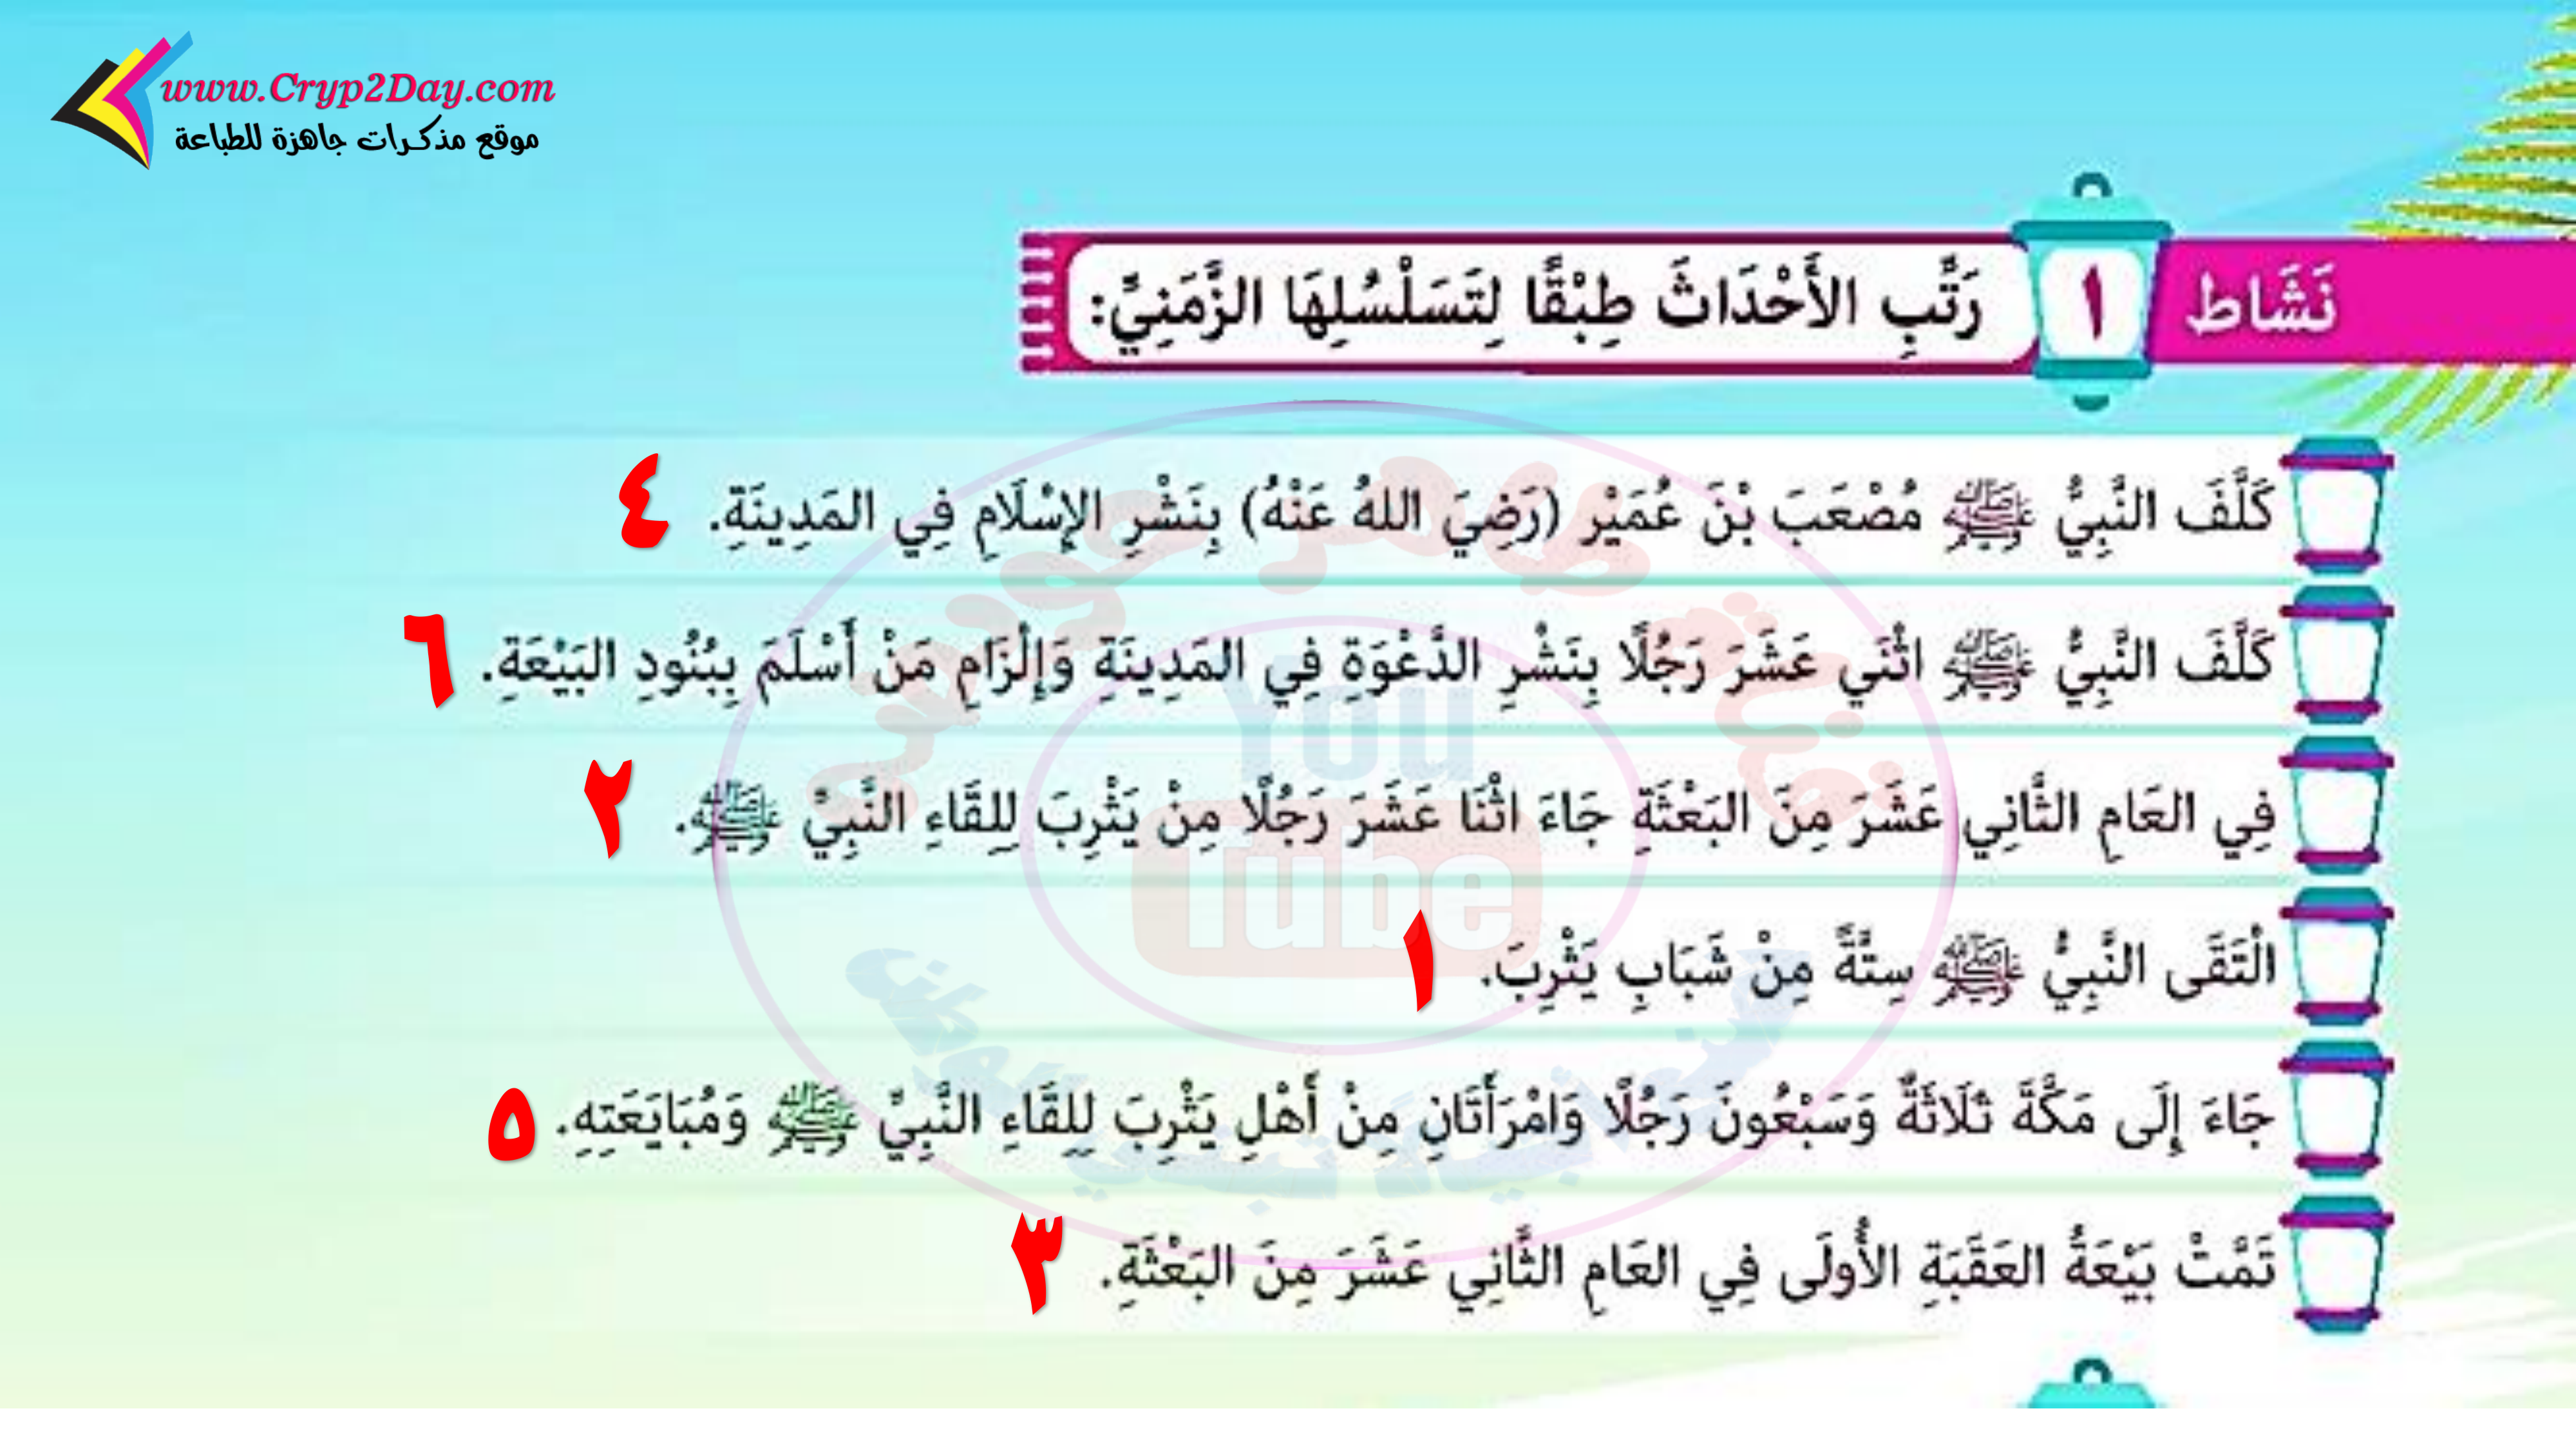 www.Cryp2Day.com
موقع مذكرات جاهزة للطباعة
نَشَاط ١ رَتِّبِ الأَحْدَاثَ طِبْقًا لِتَسَلْسُلِهَا الزَّمَنِيِّ:
كَلَّفَ النَّبِيُّ ﷺ مُصْعَبَ بْنَ عُمَيْرٍ (رَضِيَ اللهُ عَنْهُ) بِنَشْرِ الإِسْلَامِ فِي المَدِينَةِ. ٤
كَلَّفَ النَّبِيُّ ﷺ اثْنَي عَشَرَ رَجُلًا بِنَشْرِ الدَّعْوَةِ فِي المَدِينَةِ وَإِلْزَامِ مَنْ أَسْلَمَ بِبُنُودِ البَيْعَةِ. ٦
فِي العَامِ الثَّانِي عَشَرَ مِنَ البَعْثَةِ جَاءَ اثْنَا عَشَرَ رَجُلًا مِنْ يَثْرِبَ لِلِقَاءِ النَّبِيِّ ﷺ. ٢
الْتَقَى النَّبِيُّ ﷺ سِتَّةً مِنْ شَبَابِ يَثْرِبَ. ١
جَاءَ إِلَى مَكَّةَ ثَلَاثَةٌ وَسَبْعُونَ رَجُلًا وَامْرَأَتَانِ مِنْ أَهْلِ يَثْرِبَ لِلِقَاءِ النَّبِيِّ ﷺ وَمُبَايَعَتِهِ. ٥
تَمَّتْ بَيْعَةُ العَقَبَةِ الأُولَى فِي العَامِ الثَّانِي عَشَرَ مِنَ البَعْثَةِ. ٣
You
Tube